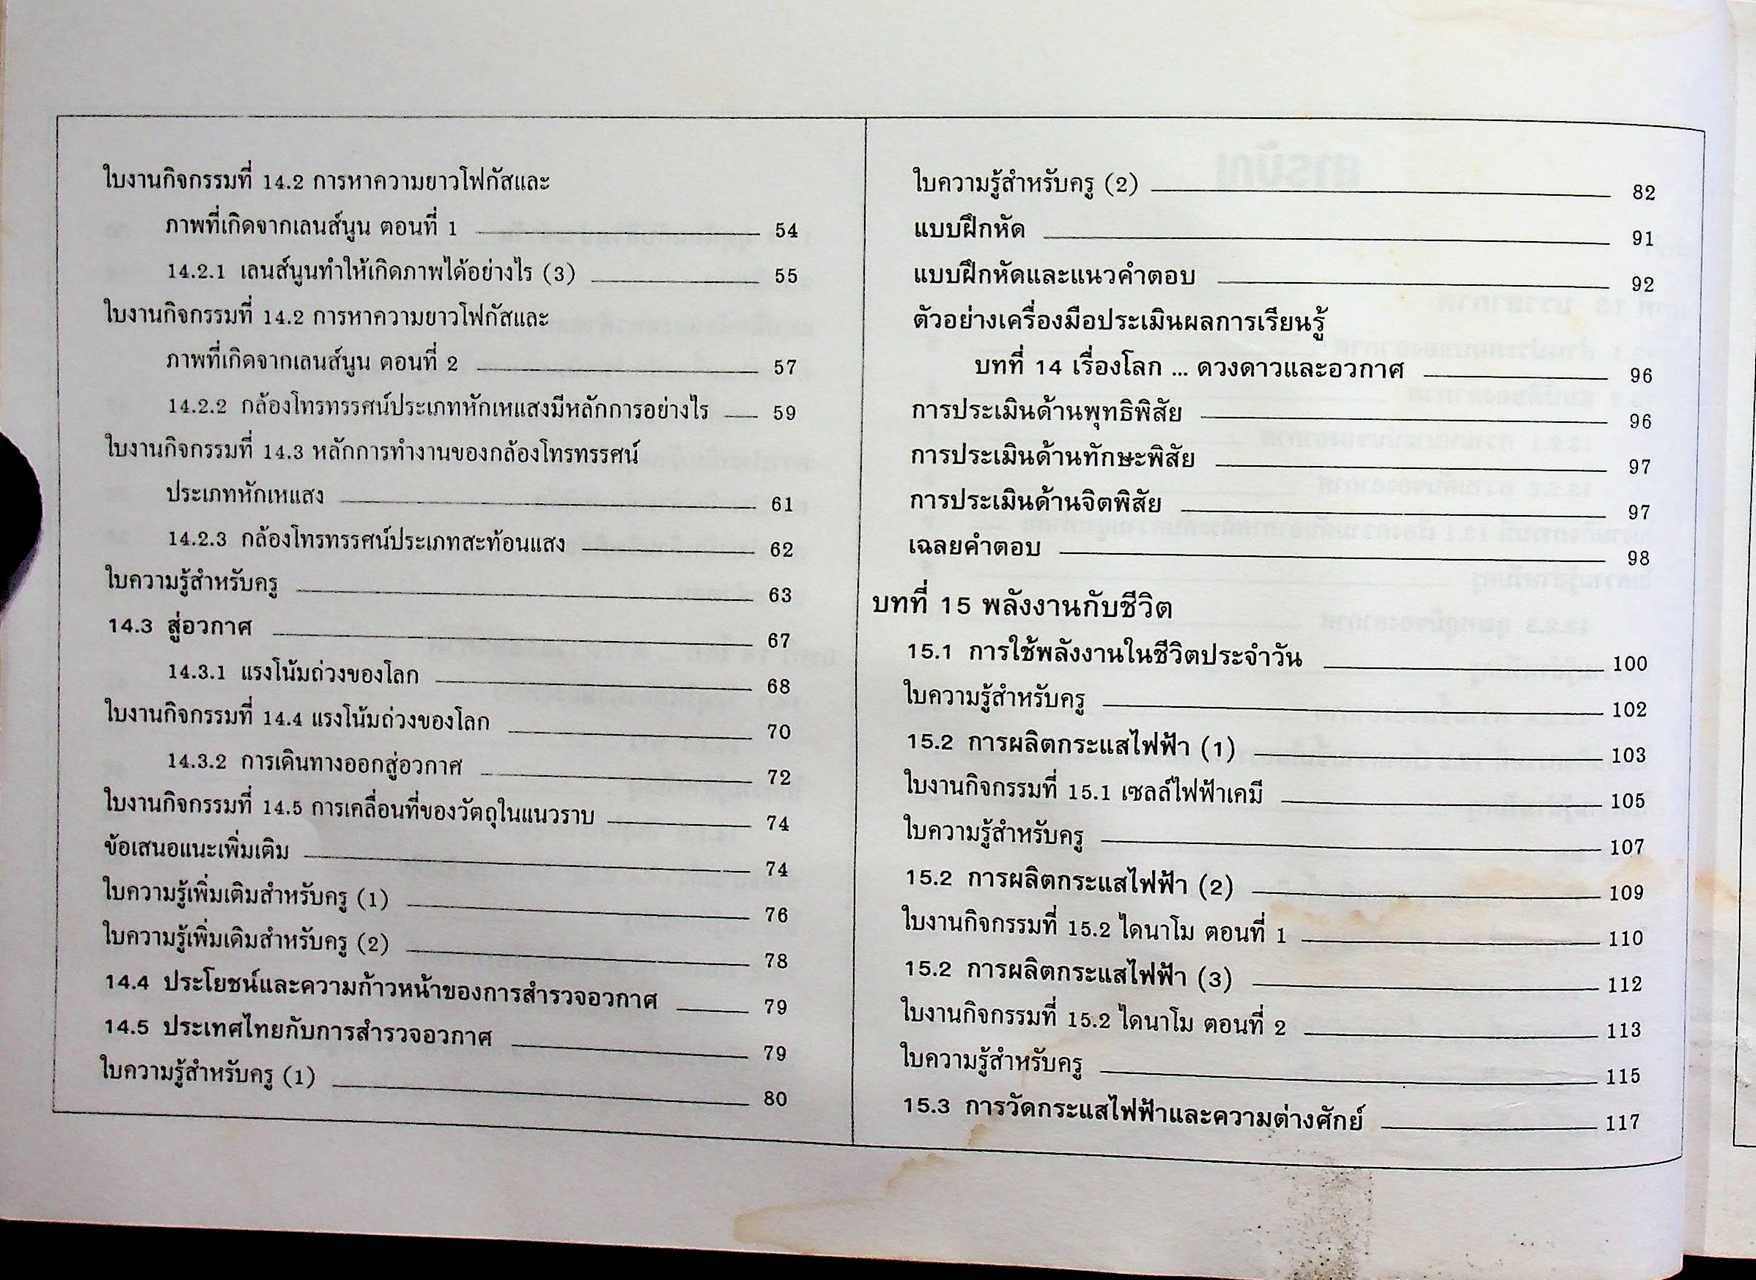 ใบงานกิจกรรมที่ 14.2 การหาความยาวโฟกัสและ
ภาพที่เกิดจากเลนส์นูน ตอนที่ 1 54
14.2.1 เลนส์นูนทำให้เกิดภาพได้อย่างไร (3) 55
ใบงานกิจกรรมที่ 14.2 การหาความยาวโฟกัสและ
ภาพที่เกิดจากเลนส์นูน ตอนที่ 2 57
14.2.2 กล้องโทรทรรศน์ประเภทหักเหแสงมีหลักการอย่างไร 59
ใบงานกิจกรรมที่ 14.3 หลักการทำงานของกล้องโทรทรรศน์
ประเภทหักเหแสง 61
14.2.3 กล้องโทรทรรศน์ประเภทสะท้อนแสง 62
ใบความรู้สำหรับครู 63
14.3 สู่อวกาศ 67
14.3.1 แรงโน้มถ่วงของโลก 68
ใบงานกิจกรรมที่ 14.4 แรงโน้มถ่วงของโลก 70
14.3.2 การเดินทางออกสู่อวกาศ 72
ใบงานกิจกรรมที่ 14.5 การเคลื่อนที่ของวัตถุในแนวราบ 74
ข้อเสนอแนะเพิ่มเติม 74
ใบความรู้เพิ่มเติมสำหรับครู (1) 76
ใบความรู้เพิ่มเติมสำหรับครู (2) 78
14.4 ประโยชน์และความก้าวหน้าของการสำรวจอวกาศ 79
14.5 ประเทศไทยกับการสำรวจอวกาศ 79
ใบความรู้สำหรับครู (1) 80
ใบความรู้สำหรับครู (2) 82
แบบฝึกหัด 91
แบบฝึกหัดและแนวคำตอบ 92
ตัวอย่างเครื่องมือประเมินผลการเรียนรู้
บทที่ 14 เรื่องโลก ... ดวงดาวและอวกาศ 96
การประเมินด้านพุทธิพิสัย 96
การประเมินด้านทักษะพิสัย 97
การประเมินด้านจิตพิสัย 97
เฉลยคำตอบ 98
บทที่ 15 พลังงานกับชีวิต
15.1 การใช้พลังงานในชีวิตประจำวัน 100
ใบความรู้สำหรับครู 102
15.2 การผลิตกระแสไฟฟ้า (1) 103
ใบงานกิจกรรมที่ 15.1 เซลล์ไฟฟ้าเคมี 105
ใบความรู้สำหรับครู 107
15.2 การผลิตกระแสไฟฟ้า (2) 109
ใบงานกิจกรรมที่ 15.2 ไดนาโม ตอนที่ 1 110
15.2 การผลิตกระแสไฟฟ้า (3) 112
ใบงานกิจกรรมที่ 15.2 ไดนาโม ตอนที่ 2 113
ใบความรู้สำหรับครู 115
15.3 การวัดกระแสไฟฟ้าและความต่างศักย์ 117